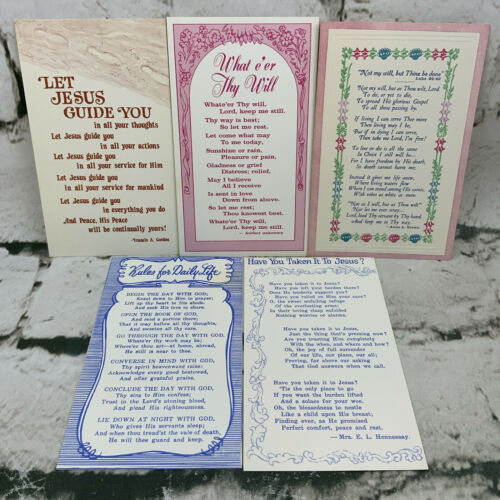 LET
JESUS
GUIDE YOU
in all your thoughts
Let Jesus guide you
in all your actions
Let Jesus guide you
in all your service for Him
Let Jesus guide you
in all your service for mankind
Let Jesus guide you
in everything you do
And Peace, His Peace
will be continually yours!
-Francis A. Gordon
What e'er
Thy Will
Whate'er Thy will,
Lord, keep me still.
Thy way is best;
So let me rest.
Let come what may
To me today,
Sunshine or rain,
Pleasure or pain,
Gladness or grief
Distress; relief,
May I believe
All I receive
Is sent in love
Down from above.
So let me rest;
Thou knowest best.
Whate'er Thy will,
Lord, keep me still.
— Author unknown
"Not my will, but Thine be done"
Luke 22:42
Not my will, but as Thou wilt, Lord,
To do, or yet to die,
To spread His glorious Gospel
To all those passing by.
If living I can serve Thee more
Then living may I be,
But if in dying I can serve,
Then take me Lord, I'm free!
To live or die is all the same
In Christ I still will be—
For I have freedom by His death,
So death cannot harm me.
Instead it gives me life anew,
Where living waters flow
Where I can stand among His saints,
With robes as white as snow.
So, as it is "Not my will but Thine"
Nor let me ever say—
Lord, lead Thy servant by Thy hand,
What keep me in Thy way.
—Alice L. Brown
Rules for Daily Life
BEGIN THE DAY WITH GOD;
Kneel down to Him in prayer;
Lift up thy heart to His abode,
And seek His love to share.
OPEN THE BOOK OF GOD,
And read a portion there;
That it may hallow all thy thoughts,
And sweeten all thy care.
GO THROUGH THE DAY WITH GOD,
Whate'er thy work may be;
Where'er thou art—at home, abroad,
He still is near to thee.
CONVERSE IN MIND WITH GOD,
Thy spirit heavenward raise;
Acknowledge every good bestowed,
And offer grateful praise.
CONCLUDE THE DAY WITH GOD,
Thy sins to Him confess;
Trust in the Lord's atoning blood,
And plead His righteousness.
LIE DOWN AT NIGHT WITH GOD,
Who gives His servants sleep;
And when thou tread'st the vale of death,
He will thee guard and keep.
Have You Taken It To Jesus?
Have you taken it to Jesus?
Have you left your burden there?
Does He tenderly support you?
Have you rolled on Him your care?
O, the sweet unfailing refuge
Of the everlasting arms;
In their loving clasp enfolded
Nothing worries or alarms.
Have you taken it to Jesus,
Just the thing that's pressing now?
Are you trusting Him completely
With the when, and where and how?
Oh, the joy of full surrender
Of our life, our plans, our all;
Proving, far above our asking
That God answers when we call.
Have you taken it to Jesus?
'Tis the only place to go
If you want the burden lifted
And a solace for your woe.
Oh, the blessedness to nestle
Like a child upon His breast;
Finding ever, as He promised
Perfect comfort, peace and rest.
— Mrs. E. L. Hennessay.